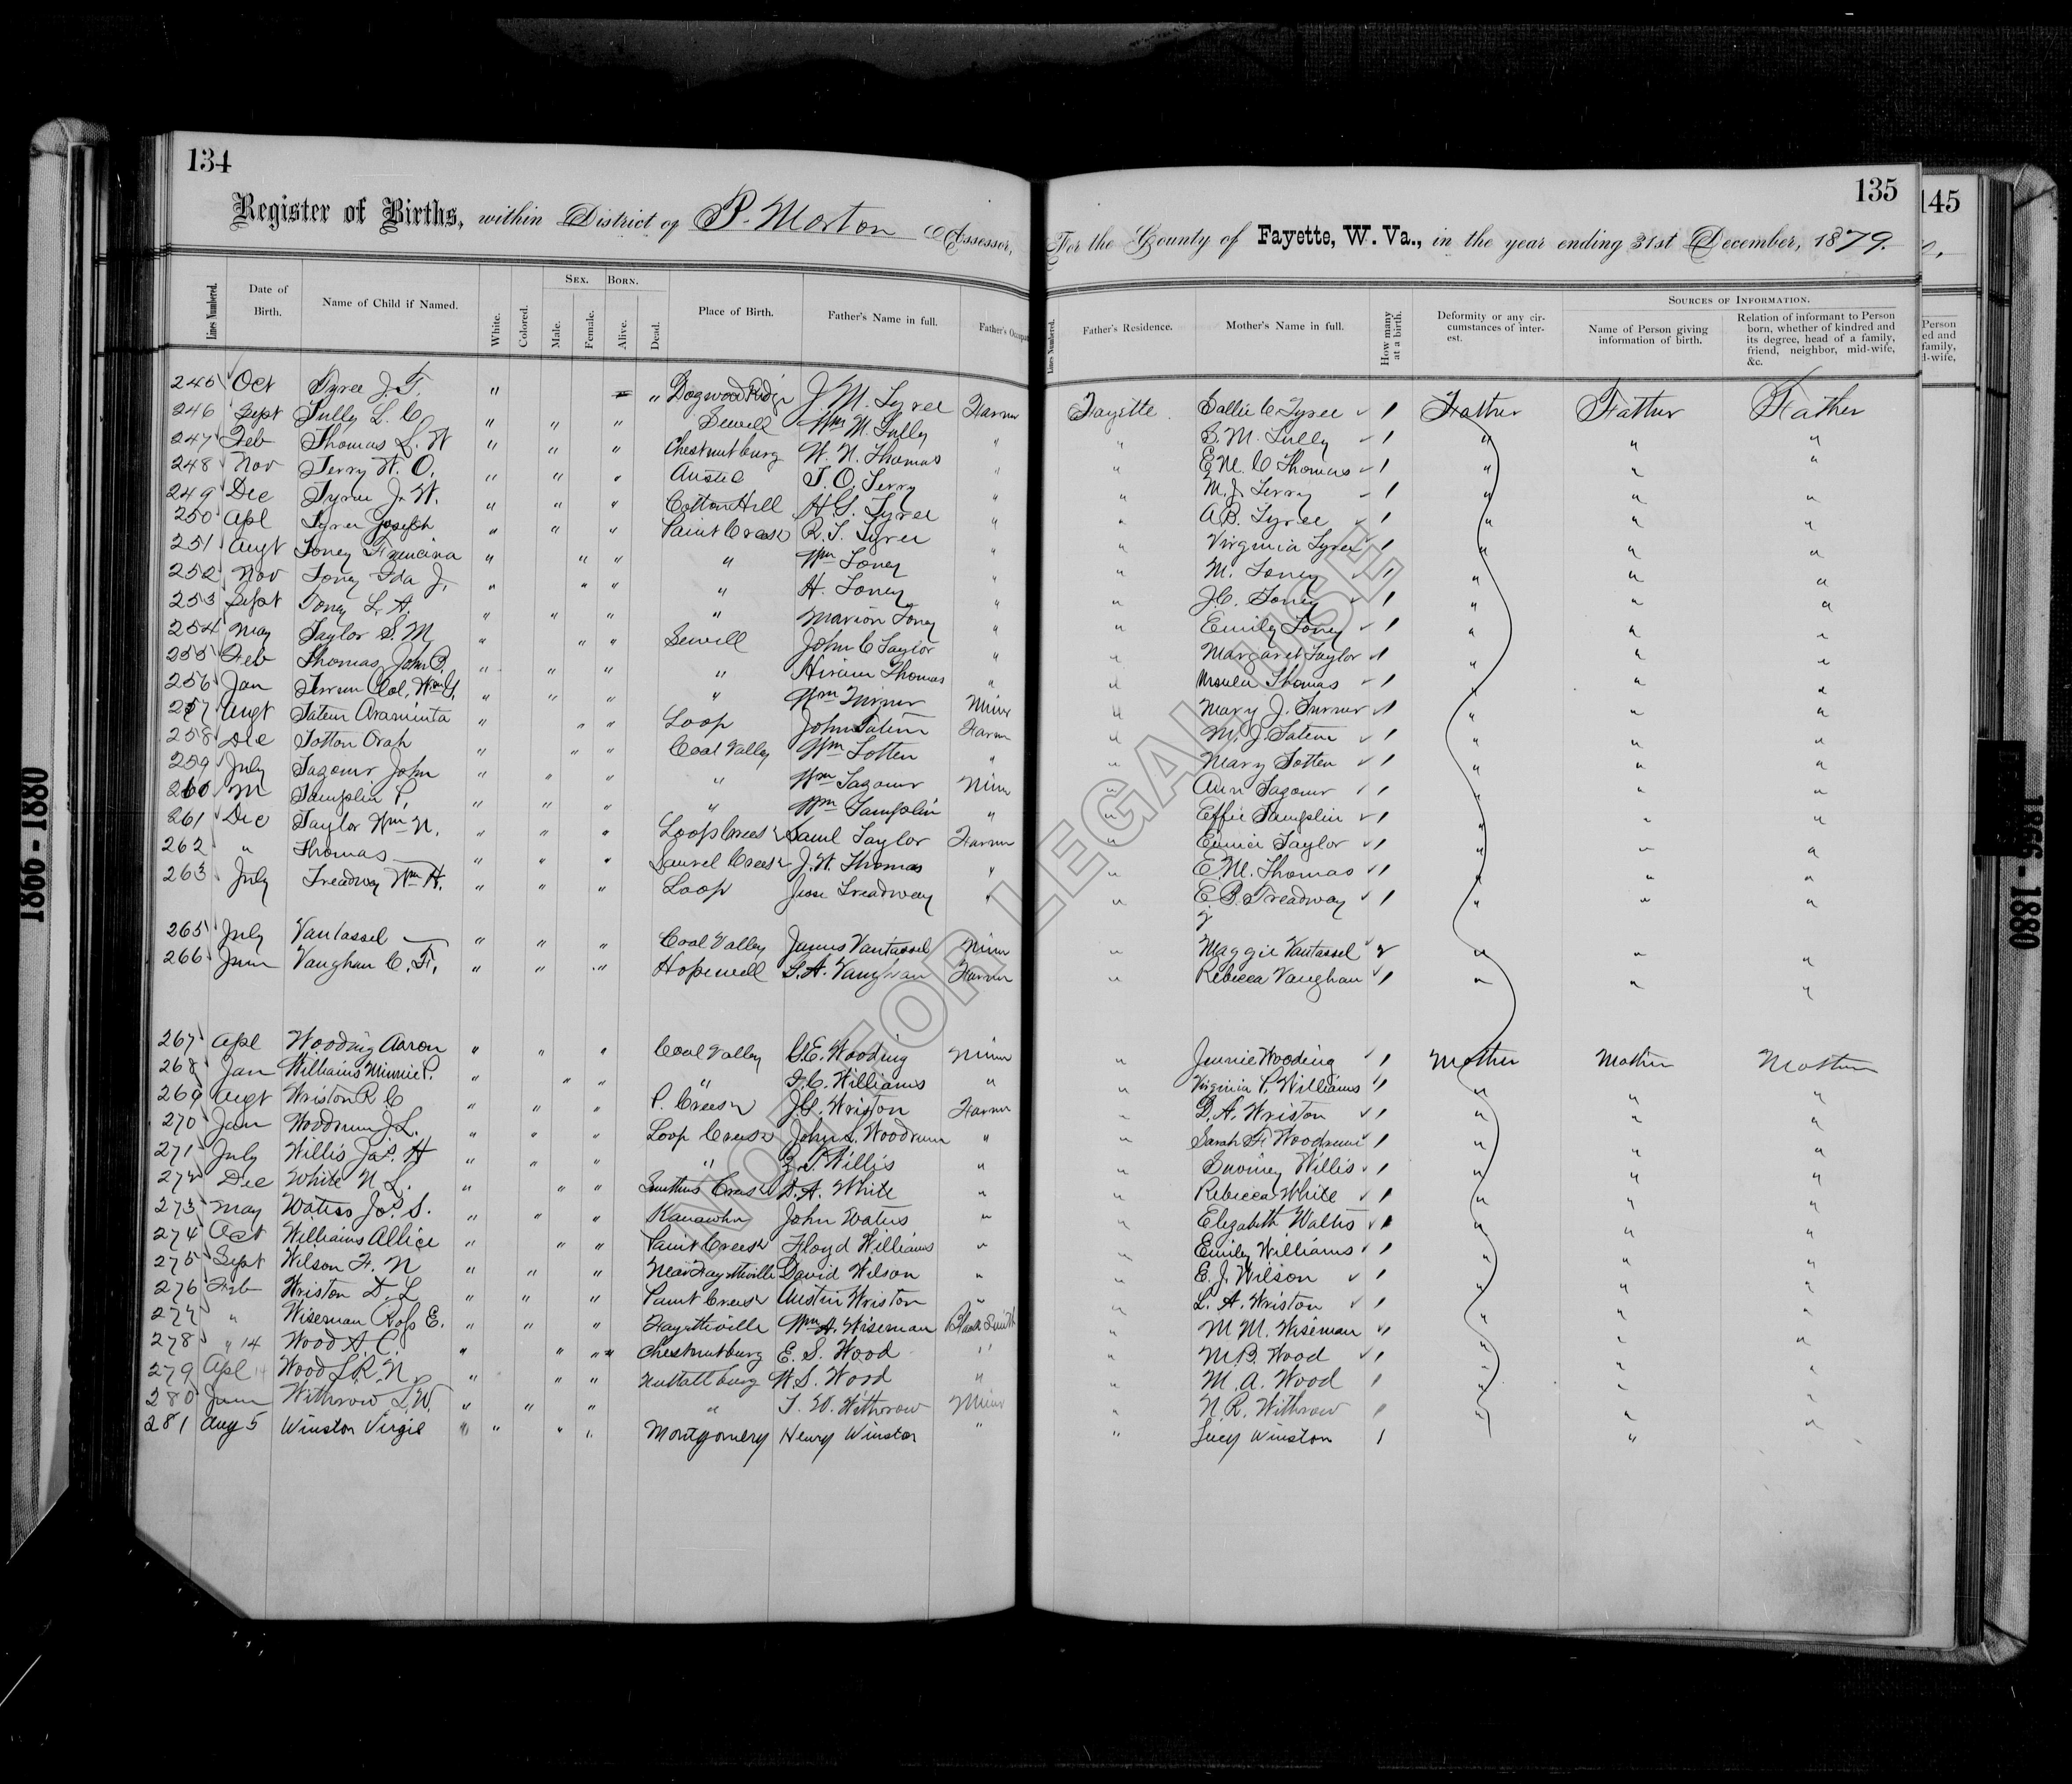 134
Register of Births, within District of P. Morton Assessor,
Lines Numbered. Date of Birth. Name of Child if Named. White. Colored. Sex. Male. Female. Born. Alive. Dead. Place of Birth. Father's Name in full. Father's Occupa
245 Oct Tyree J. T. " " Dogwood Ridge J. M. Tyree Farmer
246 Sept Tully L. C " " " Sewell Wm M. Tully "
247 Feb Thomas L. W " " " Chestnutburg W. N. Thomas "
248 Nov Terry W. O. " " " Austed T. O. Terry "
249 Dec Tyree J. W. " " " Cotton Hill H. G. Tyree "
250 Apl Tyree Joseph " " " Paint Creek R. T. Tyree "
251 Augt Toney Francina " " " " Wm Toney "
252 Nov Toney Ida J. " " " " H. Toney "
253 Sept Toney L. A. " " " " Marion Toney "
254 May Taylor S. M " " " Sewell John C Taylor "
255 Feb Thomas John P. " " " " Hiram Thomas "
256 Jan " " " " Wm Turner Miner
257 Augt Tatem Araminta " " " Loop John Tatem Farmer
258 Dec Totton Orah " " " Coal Valley Wm Totten "
259 July Tazomr John " " " " Wm Tazomr Miner
260 M Tamplin P. " " " " Wm Tamplin "
261 Dec Taylor Wm N. " " " Loop Creek Saml Taylor Farmer
262 " Thomas — " " " Laurel Creek J. W. Thomas "
263 July Treadway Wm H. " " " Loop Jesse Treadway "
265 July Vantassel — " " " Coal Valley James Vantassel Miner
266 June Vaughan C. F. " " " Hopewell S. A. Vaughan Farmer
267 Apl Wooding Aaron " " " Coal Valley G. E. Wooding Miner
268 Jan Williams Minnie P. " " " " F. C. Williams "
269 Augt Wriston R C " " " P. Creek J. G. Wriston Farmer
270 Jan Woodrum J L. " " " Loop Creek John L. Woodrum "
271 July Willis Jas. H " " " " Willis "
272 Dec White N L. " " " Smithers Creek D. A. White "
273 May Waters Jos. S. " " " Kanawha John Waters "
274 Oct Williams Allice " " " Paint Creek Floyd Williams "
275 Sept Wilson F. N " " " Near Fayetteville David Wilson "
276 Feb Wriston D. L " " " Paint Creek Austin Wriston "
277 " Wiseman Ross E. " " " Fayetteville Wm A. Wiseman Black Smith
278 " 14 Wood A. C. " " " Chestnutburg E. S. Wood "
279 Apl 14 Wood L. R. N. " " " Nuttallburg W. S. Wood "
280 June Withrow L. W. " " " " T. W. Withrow Miner
281 Aug 5 Winston Virgie " " " Montgomery Henry Winston "
135
For the County of Fayette, W. Va., in the year ending 31st December, 1879.
Lines Numbered. Father's Residence. Mother's Name in full. How many at a birth. Deformity or any circumstances of interest. Sources of Information. Name of Person giving information of birth. Relation of informant to Person born, whether of kindred and its degree, head of a family, friend, neighbor, mid-wife, &c.
Fayette Sallie C. Tyree 1 Father Father Father
" S. M. Tully 1 " " "
" E. M. C Thomas 1 " " "
" M. J. Terry 1 " " "
" A B. Tyree 1 " " "
" Virginia Tyree 1 " " "
" M. Toney 1 " " "
" J. C. Toney 1 " " "
" Emily Toney 1 " " "
" Margaret Taylor 1 " " "
" Ursula Thomas 1 " " "
" Mary J. Turner 1 " " "
" M. J. Tatem 1 " " "
" Mary Totten 1 " " "
" Ann Tazomr 1 " " "
" Effie Tamplin 1 " " "
" Taylor 1 " " "
" E. M. Thomas 1 " " "
" E. B. Treadway 1 " " "
" Maggie Vantassel 2 " " "
" Rebecca Vaughan 1 " " "
" Jennie Wooding 1 Mother Mother Mother
" Virginia P. Williams 1 " " "
" D. A. Wriston 1 " " "
" Sarah F. Woodrum 1 " " "
" Willis 1 " " "
" Rebecca White 1 " " "
" Elizabeth Walters 1 " " "
" Emily Williams 1 " " "
" E. J. Wilson 1 " " "
" L. A. Wriston 1 " " "
" M M. Wiseman 1 " " "
" M. B. Wood 1 " " "
" M. A. Wood 1 " " "
" N. R. Withrow 1 " " "
" Lucy Winston 1 " "
145
Person
ed and
family,
d-wife,
1866 - 1880
1866 - 1880
NOT FOR LEGAL USE